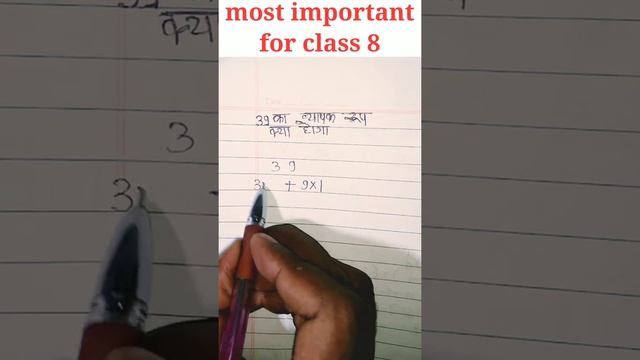 most important
for class 8
39 का व्यापक रूप
क्या होगा
3 9
3x + 9x1